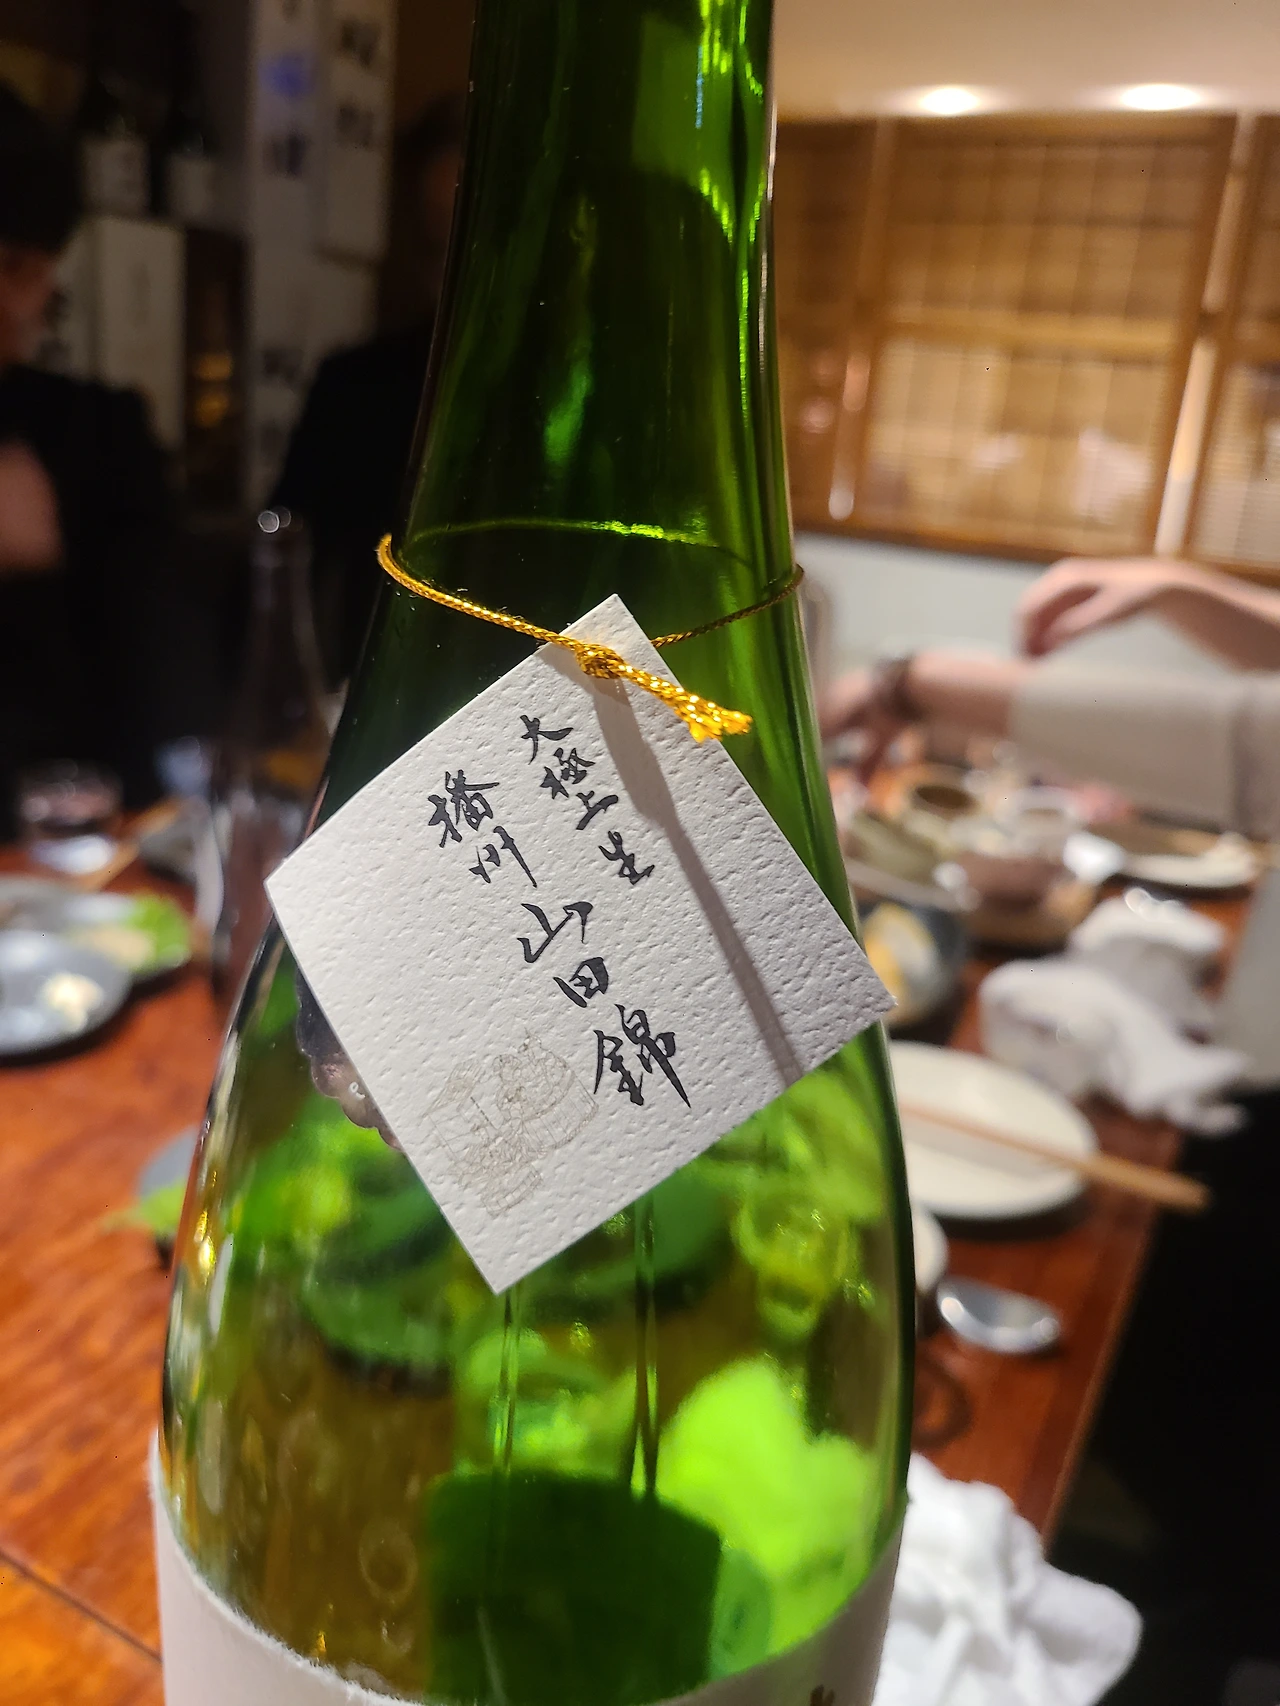 大極上 生
播州 山田錦